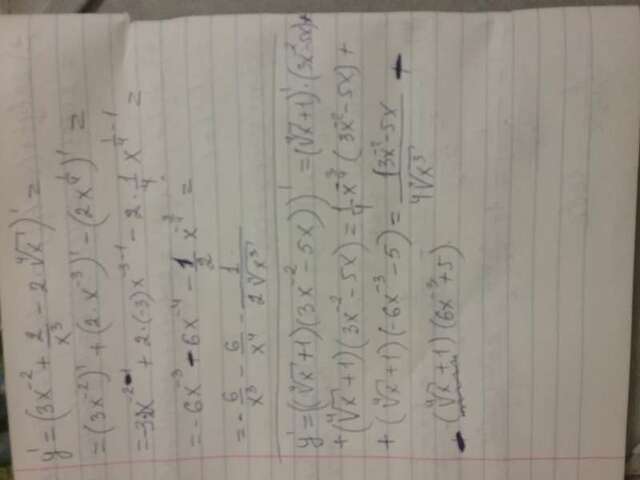 y' = (3x⁻² + 2/x³ - 2 ⁴√x)' =
= (3x⁻²)' + (2·x⁻³)' - (2x^(1/4))' =
= -3·2x⁻²⁻¹ + 2·(-3)x⁻³⁻¹ - 2·1/4 x^(1/4 - 1) =
= -6x⁻³ - 6x⁻⁴ - 1/2 x^(-3/4) =
= -6/x³ - 6/x⁴ - 1/(2 ⁴√x³)
y' = ((⁴√x + 1)(3x⁻² - 5x))' = (⁴√x + 1)'·(3x⁻² - 5x) +
+ (⁴√x + 1)(3x⁻² - 5x)' = 1/4 x^(-3/4) (3x⁻² - 5x) +
+ (⁴√x + 1)(-6x⁻³ - 5) = (3x⁻² - 5x)/(4 ⁴√x³) +
- (⁴√x + 1)(6x⁻³ + 5).